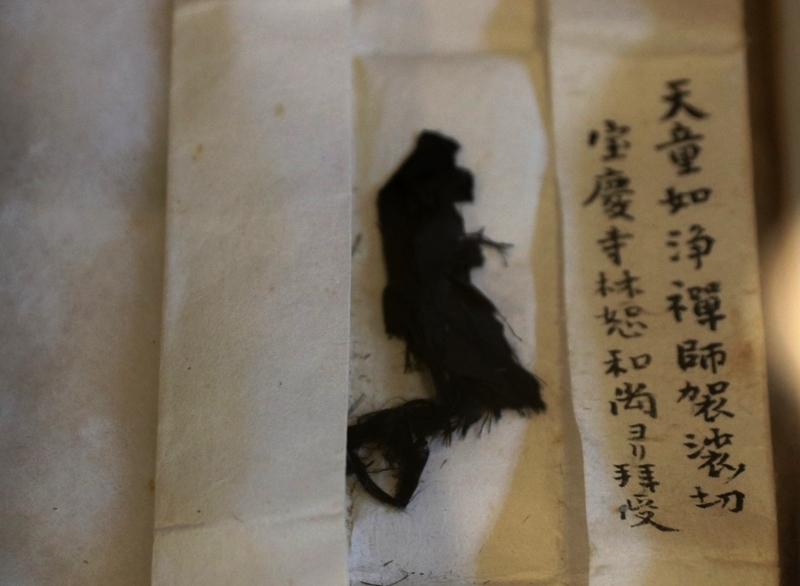 天童如浄禪師袈裟切
宝慶寺林恕和尚ヨリ拜受